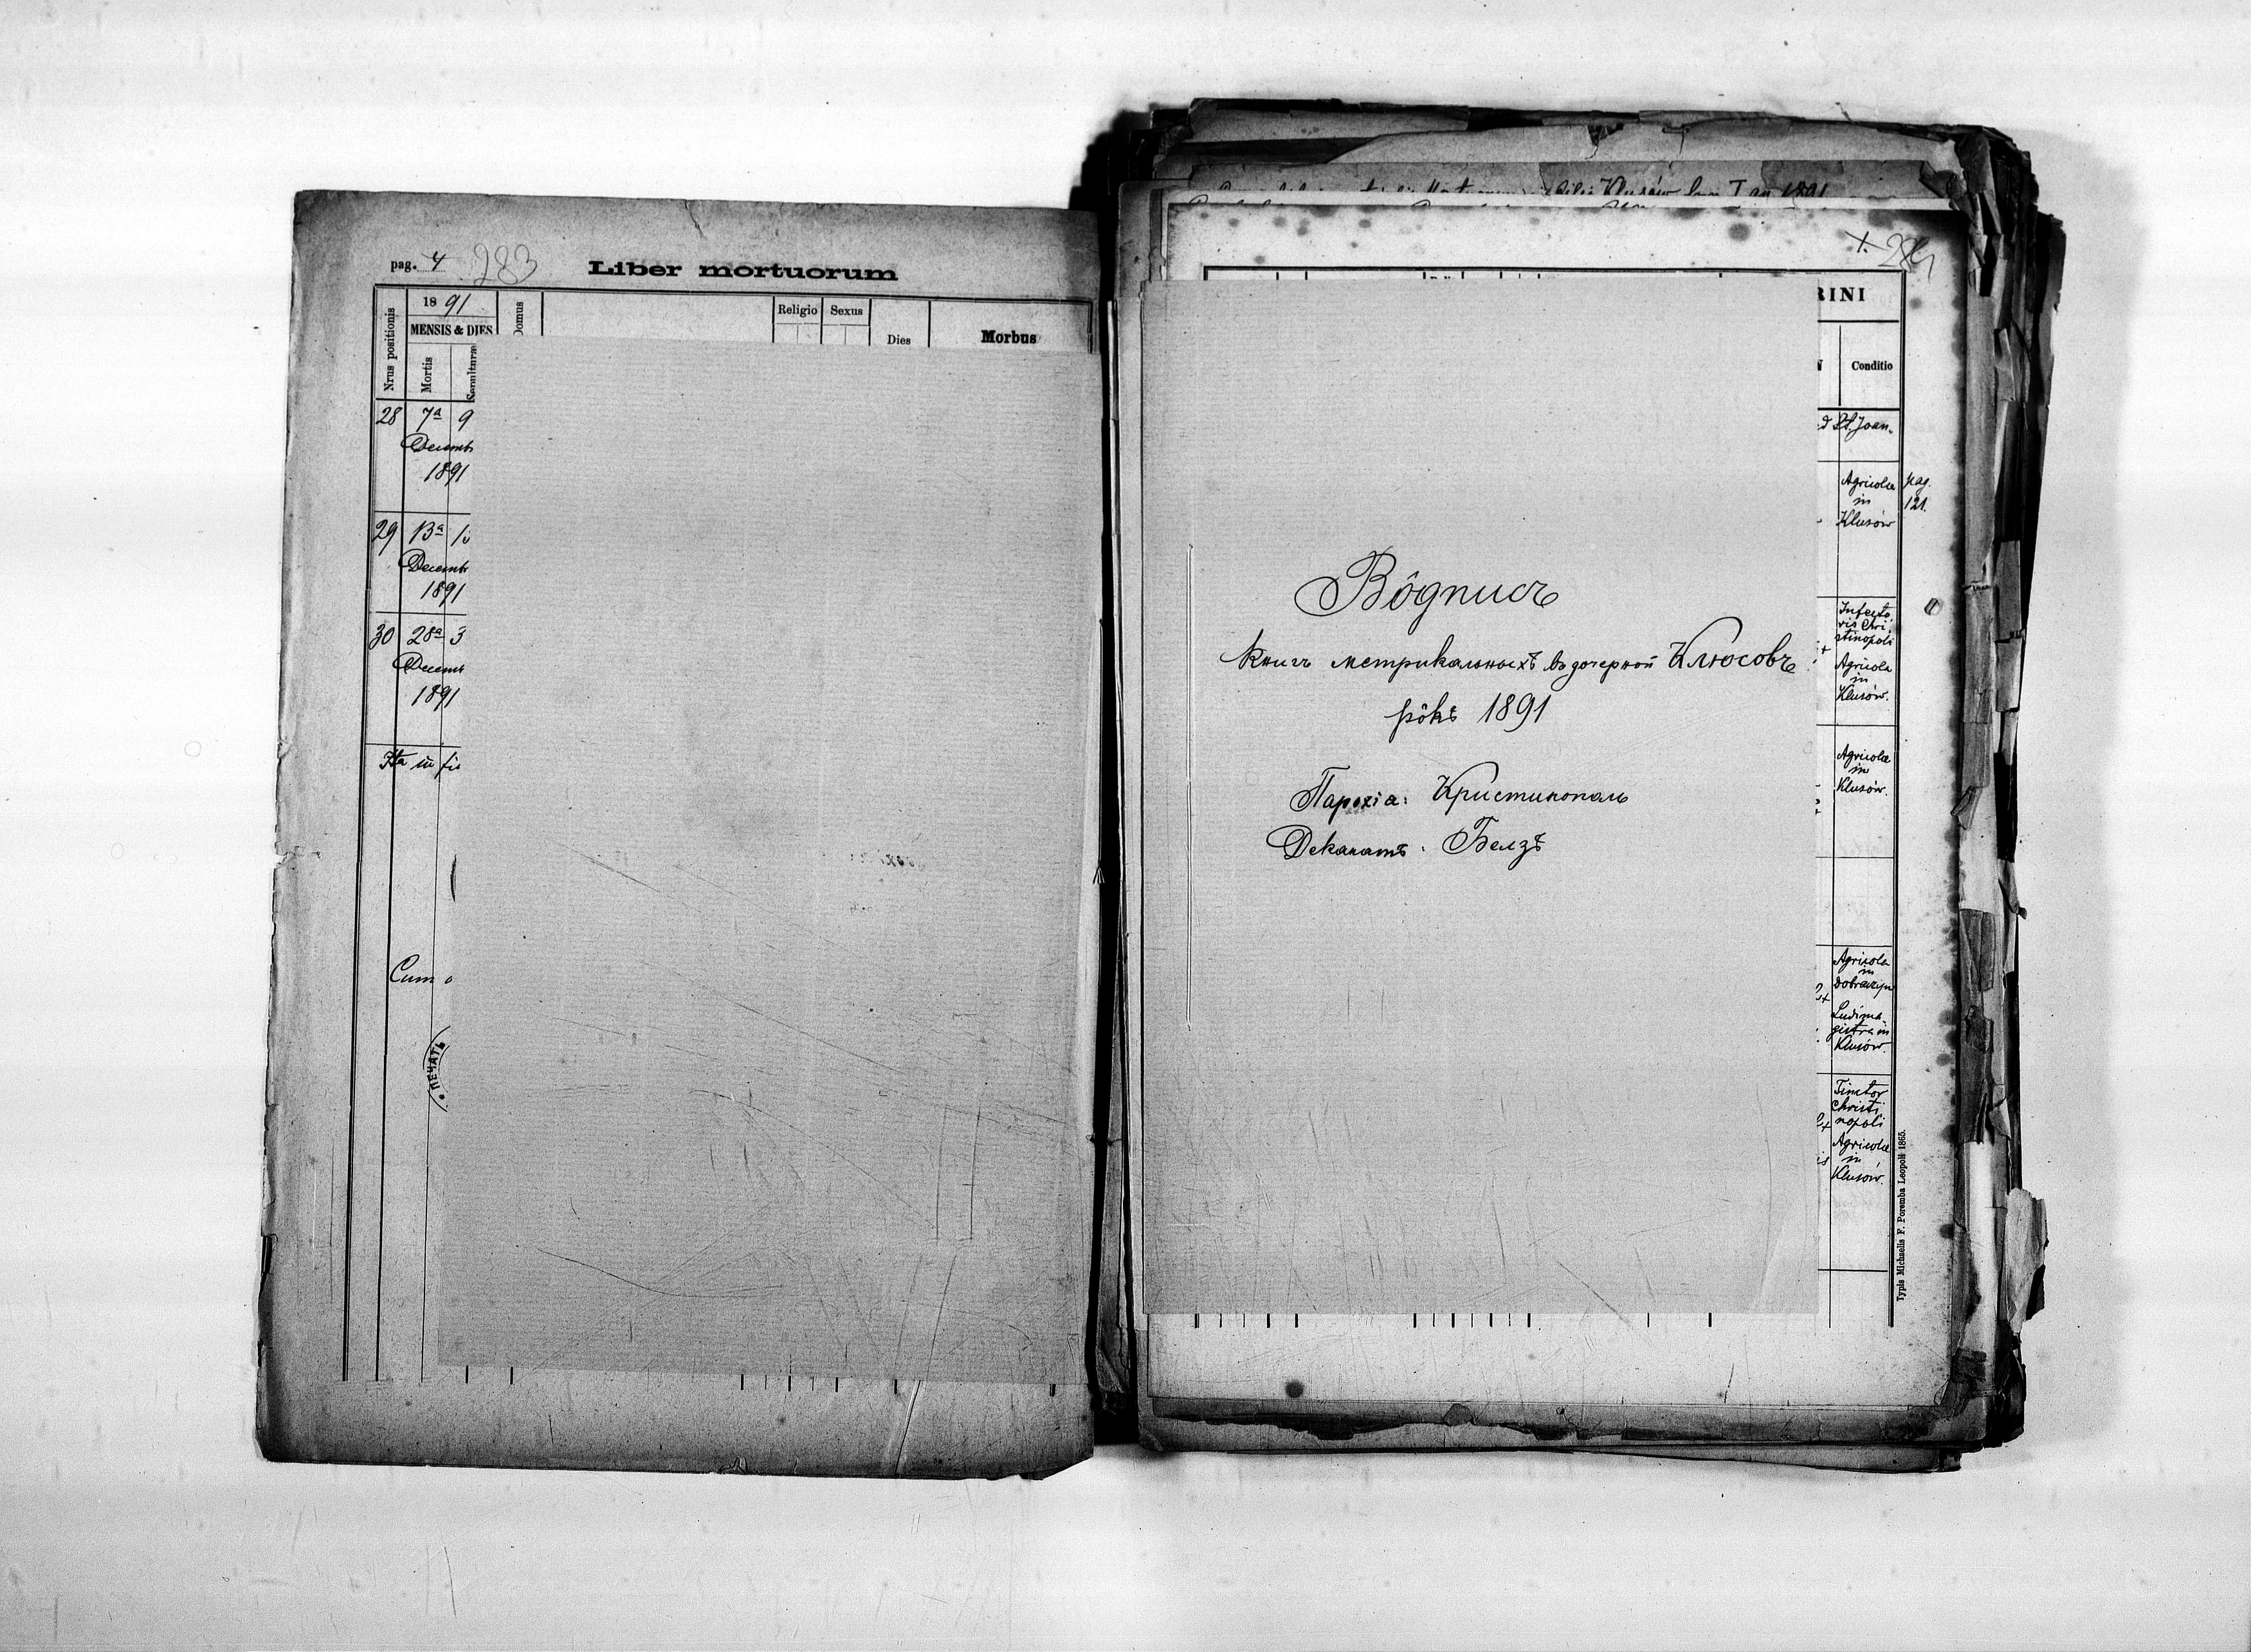 pag. 4 283
Liber mortuorum
Nrus positionis
18 91
MENSIS & DIES
Mortis
Domus
Religio
Sexus
Dies
Morbus
28 7ª 9
Decemb
1891
29 13ª
Decemb
1891
30 28ª 3
Decemb
1891
Ita in
Cum
ПЕЧАТЬ
RINI
Conditio
St. Joan.
Agricola
in
Klusów
pag.
121.
stinopoli
Agricola
in
Klusów.
Agricola
in
Klusów.
Agricola
in
Dobraczyn
Ludima-
gistra in
Klusów.
Tinctor
Christi
nopoli
Agricola
in
Klusów.
Typis Michaelis F. Poremba Leopoli 1865.
Вôдпись
книгъ метрикальныхъ въ дочерной Клюсовѣ
рôкъ 1891
Парохіа: Кристинополь
Деканатъ: Белзъ